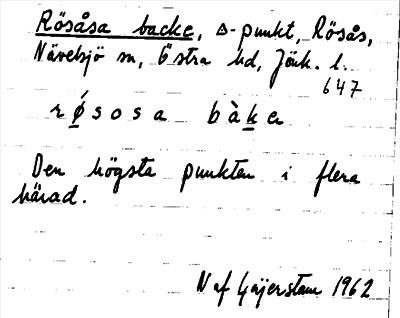 Rösåsa backe, △-punkt, Rösås,
Nävelsjö sn, Östra hd, Jönk. l.
647
rǿsosa bàke
Den högsta punkten i flera
härad.
N af Gäjerstam 1962